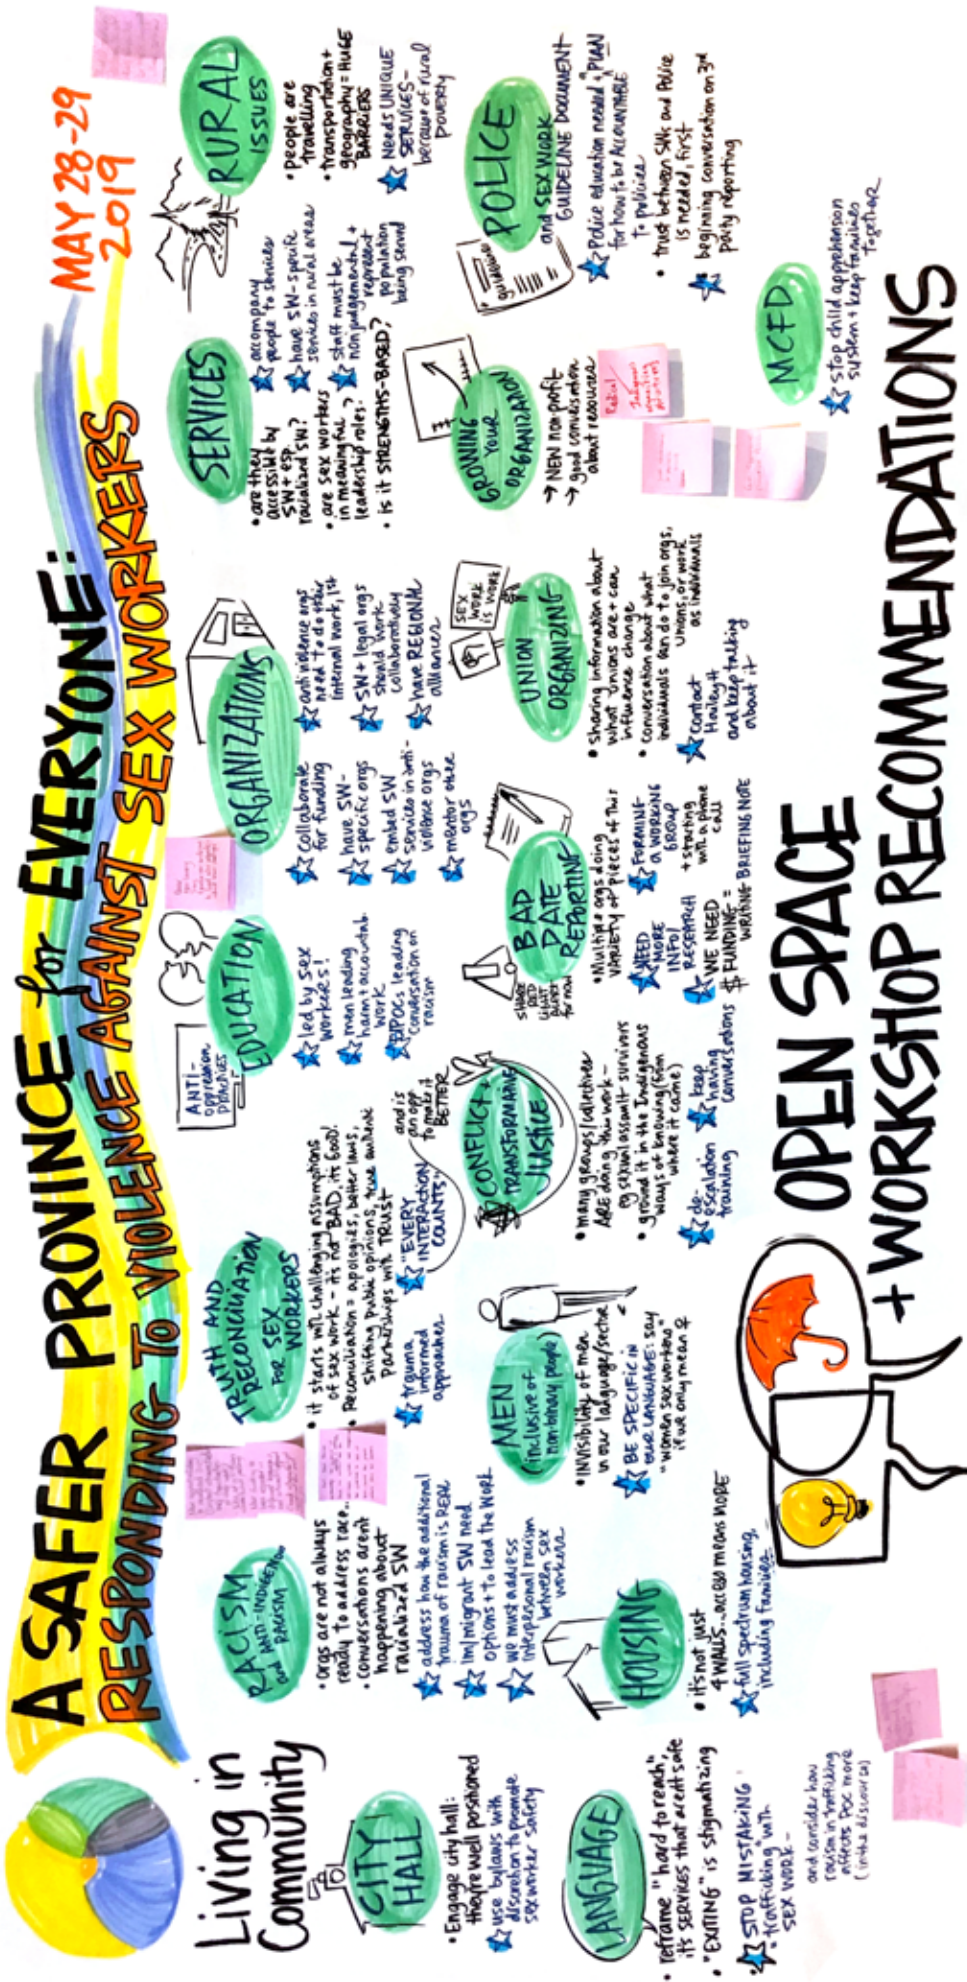 A SAFER PROVINCE for EVERYONE:
RESPONDING TO VIOLENCE AGAINST SEX WORKERS
MAY 28-29
2019
Living in
Community
CITY
HALL
• Engage city hall:
they're well positioned
use bylaws with
discretion to promote
sex worker safety
LANGUAGE
• reframe "hard to reach",
it's SERVICES that aren't safe
• "EXITING" is stigmatizing
STOP MISTAKING
trafficking with
SEX WORK -
and consider how
racism in trafficking
affects POC more
(in the discourse)
RACISM
and ANTI-INDIGENOUS
RACISM
• orgs are not always
ready to address race...
• conversations aren't
happening about
racialized SW
address how the additional
trauma of racism is REAL
Im/migrant SW need
options + to lead the WORK
we must address
interpersonal racism
between sex
workers
HOUSING
• it's not just
4 WALLS... access means MORE
full spectrum housing,
including families
TRUTH AND
RECONCILIATION
FOR SEX
WORKERS
• it starts with challenging assumptions
of sex work - it's not BAD, it's GOOD!
• Reconciliation = apologies, better laws,
shifting public opinions, true authentic
partnerships with TRUST
trauma
informed
approaches
"EVERY
INTERACTION
COUNTS"
and is
an opp
to make it
BETTER
MEN
(inclusive of
non-binary people)
• INVISIBILITY of men
in our language/sector
BE SPECIFIC IN
OUR LANGUAGE: say
"women sex workers"
if we only mean ♀
CONFLICT +
TRANSFORMATIVE
JUSTICE
• many groups/collectives
ARE doing this work -
eg sexual assault survivors
• ground it in the Indigenous
ways of knowing (from
where it came)
de-
escalation
training
keep
having
conversations
ANTI-
oppression
practices
EDUCATION
led by sex
workers!
men leading
harm + accountab.
work
BIPOCs leading
conversation on
racism
SHARE
RED
LIGHT
ALERT
for now
BAD
DATE
REPORTING
• Multiple orgs doing
VARIETY of pieces of this
NEED
MORE
INFO/
RESEARCH
FORMING
a WORKING
GROUP
+ starting
with a phone
call
WE NEED
$ FUNDING =
WRITING BRIEFING NOTE
ORGANIZATIONS
collaborate
for funding
have SW-
specific orgs
embed SW
services in anti-
violence orgs
mentor other
orgs
anti violence orgs
need to do their
internal work, 1st
SW + legal orgs
should work
collaboratively
have REGIONAL
alliances
SEX
WORK
is WORK
UNION
ORGANIZING
• sharing information about
what unions are + can
influence change
• conversation about what
individuals can do to join orgs,
unions, or work
as individuals
contact
Hailey H
and keep talking
about it
SERVICES
• are they
accessible by
SW + esp.
racialized SW?
• are sex workers
in meaningful
leadership roles?
• is it STRENGTHS-BASED?
accompany
people to services
have SW-specific
services in rural areas
staff must be
nonjudgemental +
represent
population
being served
GROWING
YOUR
ORGANIZATION
→ NEW non profit
→ good conversation
about resources
RURAL
ISSUES
• people are
travelling
• transportation +
geography = HUGE
BARRIERS
Needs UNIQUE
SERVICES -
because of rural
POVERTY
guidelines
POLICE
and SEX WORK
GUIDELINE DOCUMENT
Police education needed + PLAN
for how to be ACCOUNTABLE
to policies
• trust between SWs and Police
is needed, first
beginning conversation on 3rd
party reporting
MCFD
stop child apprehension
system + keep families
together
OPEN SPACE
+ WORKSHOP RECOMMENDATIONS